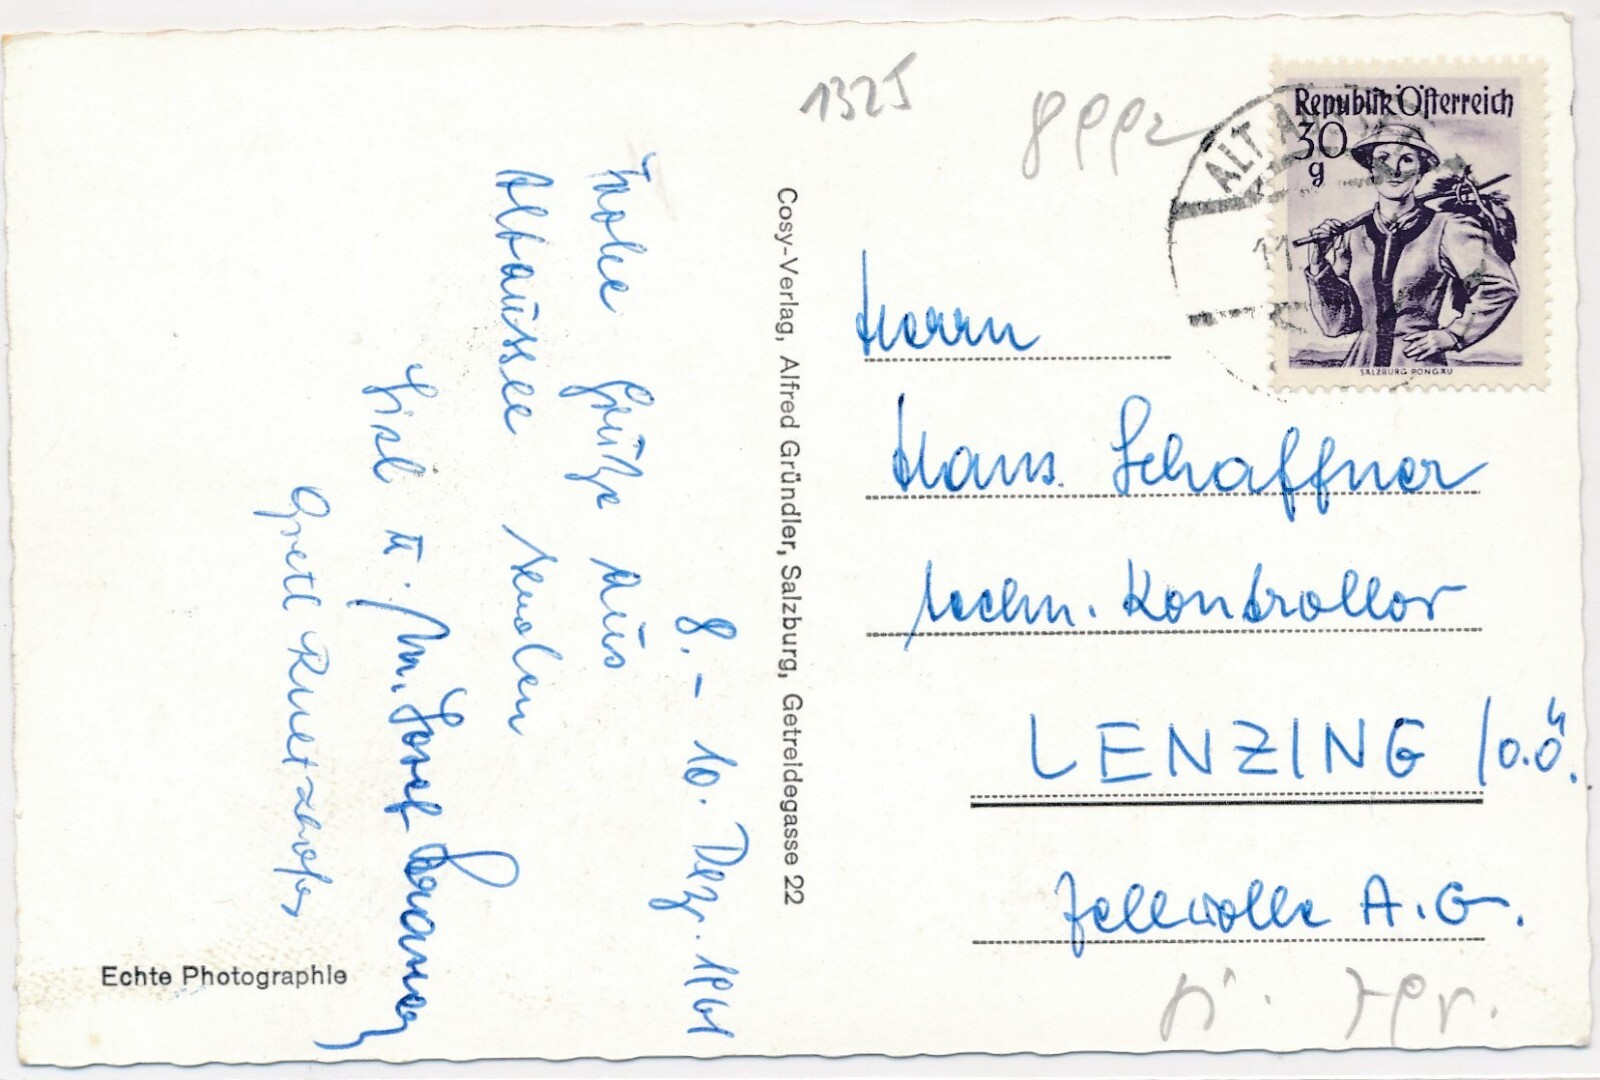 8. - 10. Dez. 1961
Frohe Grüße aus
Altaussee senden
Lisl u. Josef
Gretl
Echte Photographie
Cosy-Verlag, Alfred Gründler, Salzburg, Getreidegasse 22
1325
Republik Österreich
30
g
SALZBURG PONGAU
ALT A
11
Herrn
Hans Schaffner
techn. Kontrollor
LENZING / O.Ö.
Zellwolle A.G.